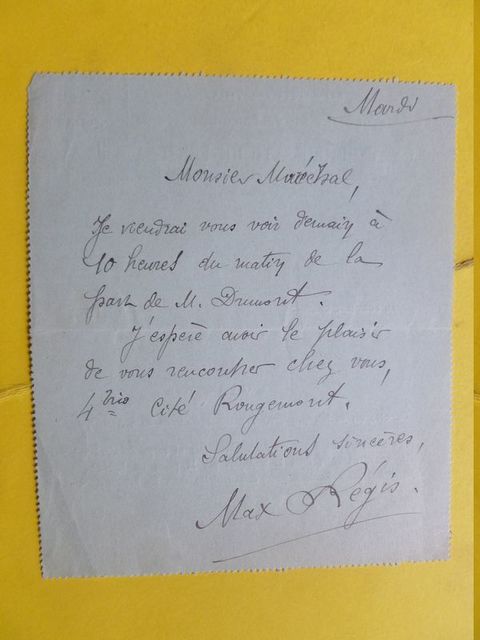 Mardi
Monsieur Maréchal,
Je viendrai vous voir demain à
10 heures du matin de la
part de M. Drumont.
J'espère avoir le plaisir
de vous rencontrer chez vous,
4 bis Cité Rougemont.
Salutations sincères,
Max Régis.